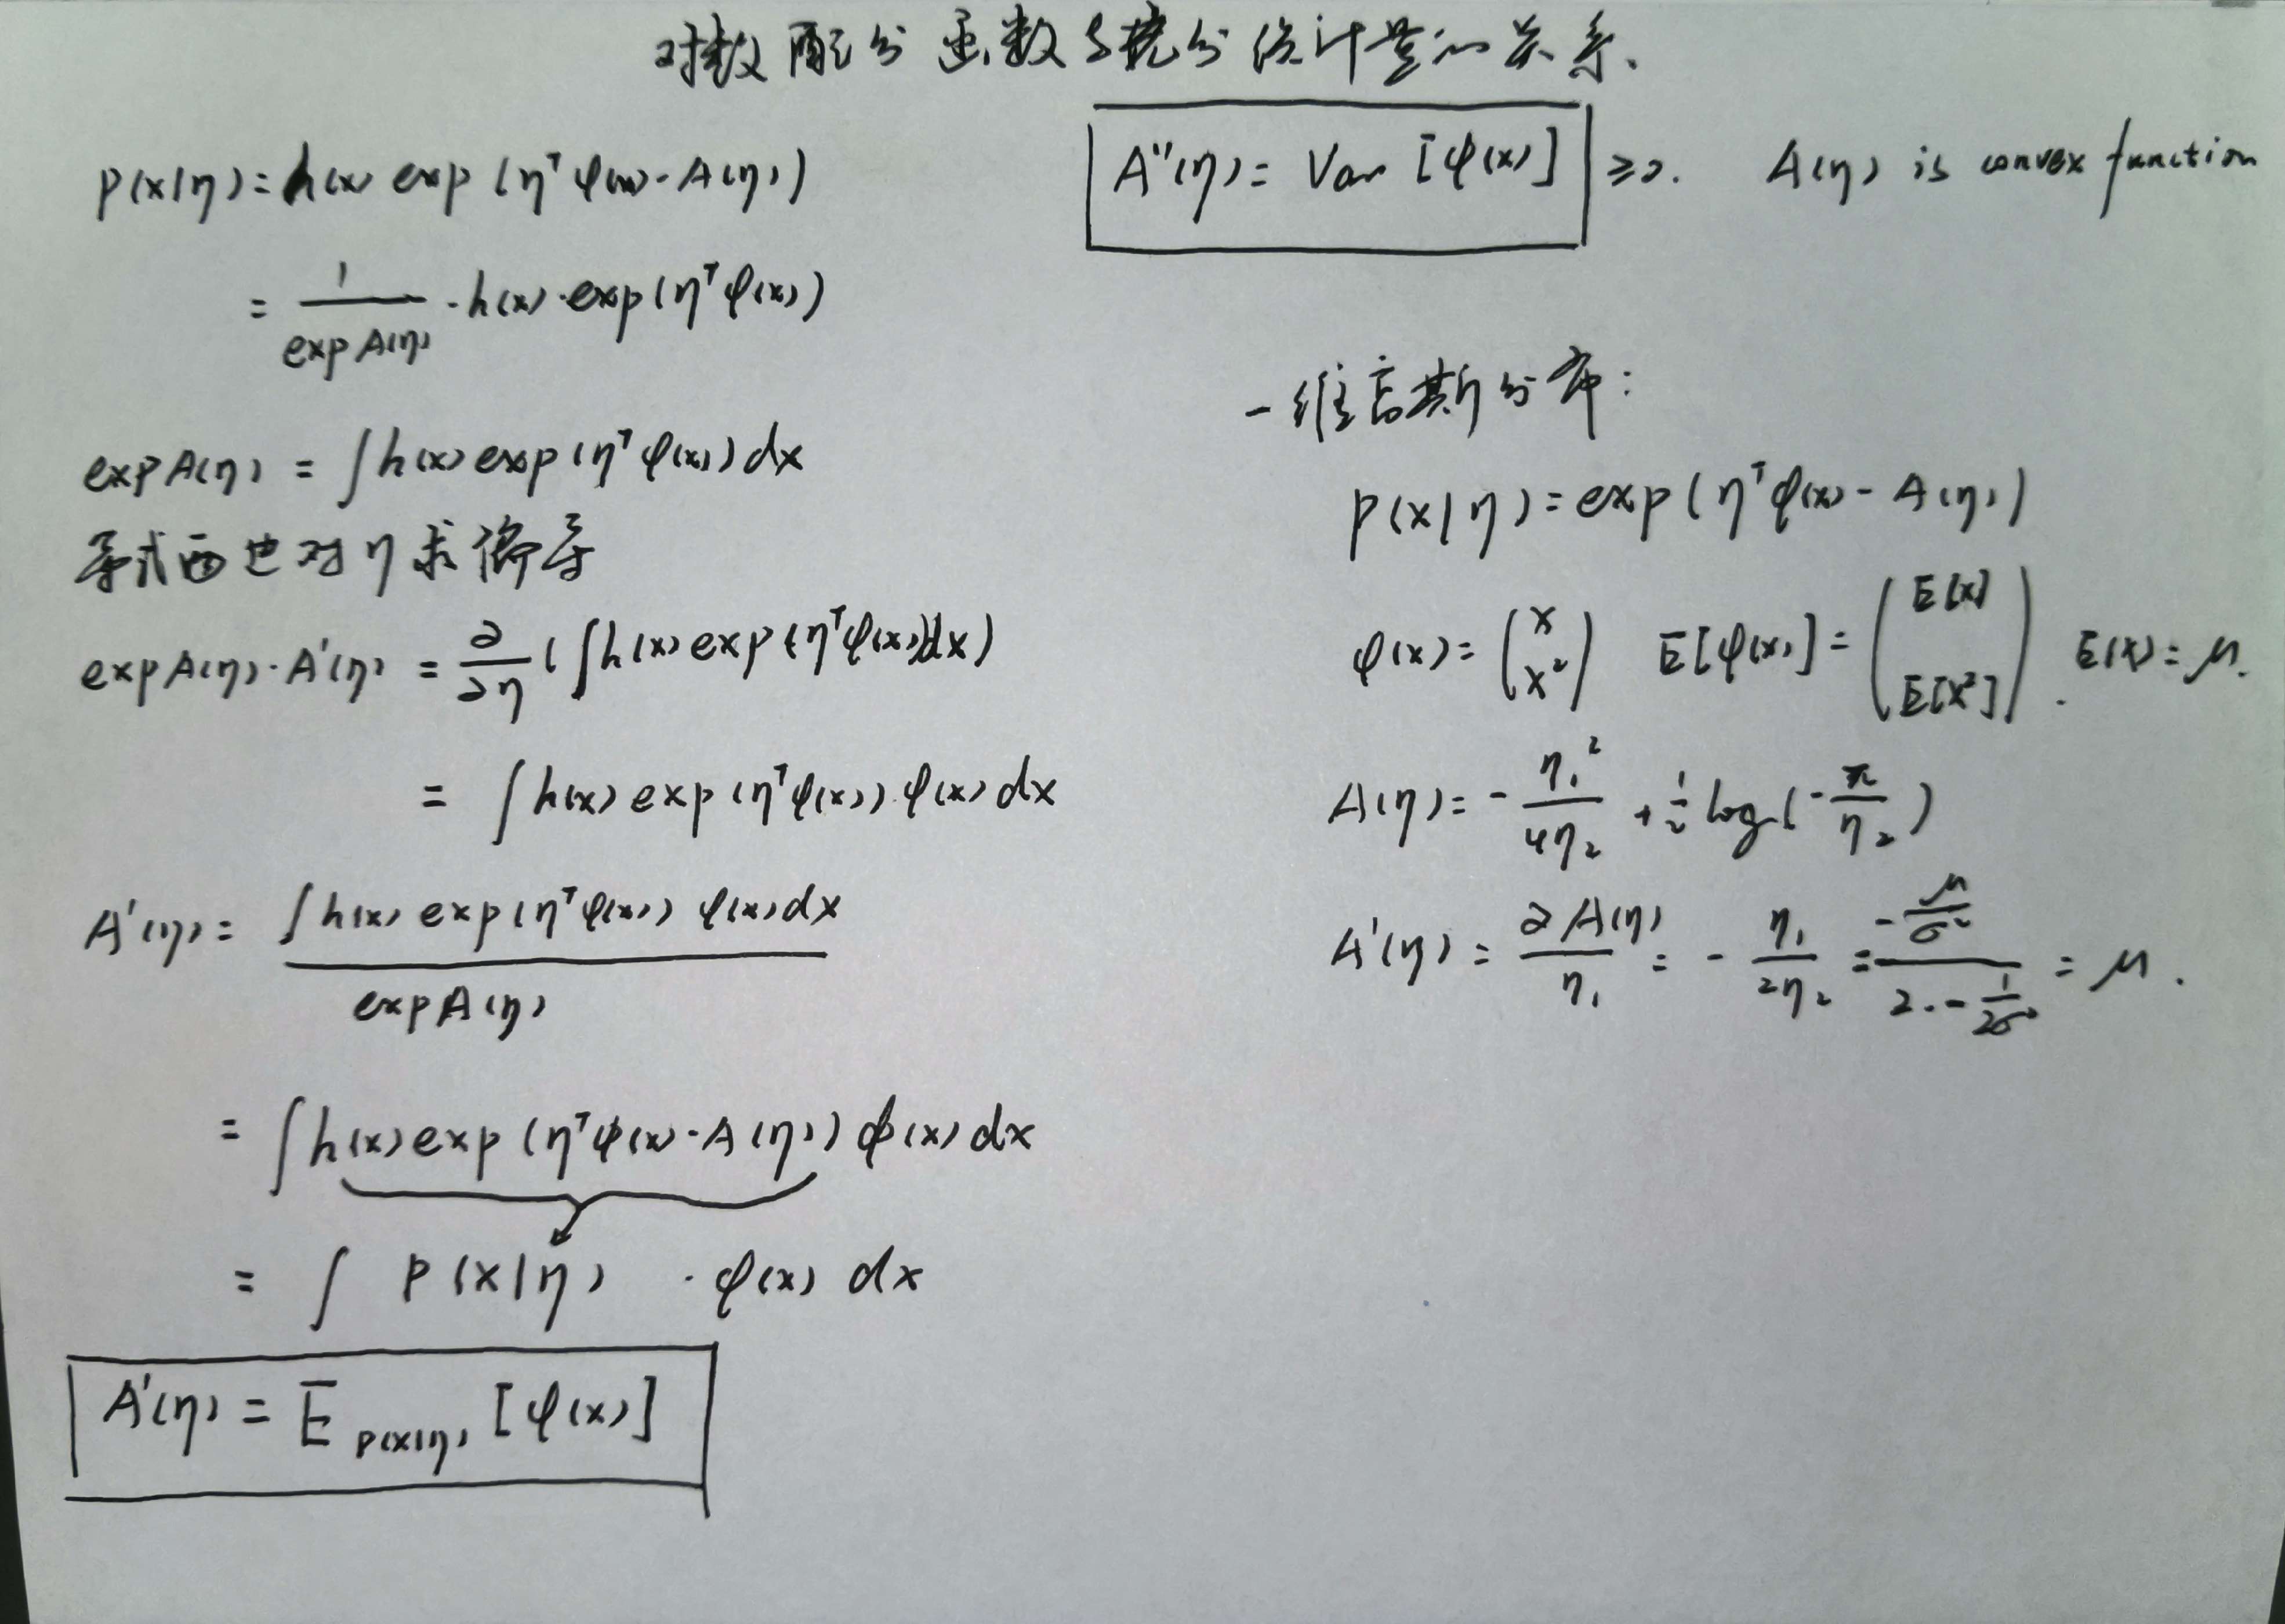 对数配分函数与充分统计量的关系.
P(x|η) = h(x) exp(η^T φ(x) - A(η))
= 1/exp A(η) · h(x) · exp(η^T φ(x))
exp A(η) = ∫ h(x) exp(η^T φ(x)) dx
等式两边对 η 求偏导
exp A(η) · A'(η) = ∂/∂η (∫ h(x) exp(η^T φ(x)) dx)
= ∫ h(x) exp(η^T φ(x)) · φ(x) dx
A'(η) = ∫ h(x) exp(η^T φ(x)) φ(x) dx / exp A(η)
= ∫ h(x) exp(η^T φ(x) - A(η)) φ(x) dx
= ∫ P(x|η) · φ(x) dx
A'(η) = E_{P(x|η)} [φ(x)]
A''(η) = Var [φ(x)] ≥ 0. A(η) is convex function
一维高斯分布:
P(x|η) = exp(η^T φ(x) - A(η))
φ(x) = (x x²) E[φ(x)] = (E[x] E[x²]). E(x) = μ.
A(η) = - η₁²/4η₂ + 1/2 log(-π/η₂)
A'(η) = ∂A(η)/η₁ = - η₁/2η₂ = (-μ/σ²)/(2·-1/2σ²) = μ.